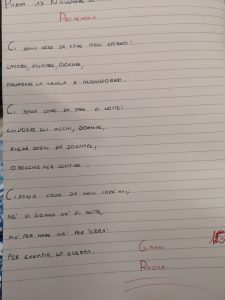 PROMEMORIA
CI SONO COSE DA FARE OGNI GIORNO:
LAVARSI, STUDIARE, GIOCARE,
PREPARARE LA TAVOLA A MEZZOGIORNO.
CI SONO COSE DA FARE DI NOTTE:
CHIUDERE GLI OCCHI, DORMIRE,
AVERE SOGNI DA SOGNARE,
ORECCHIE PER SENTIRE.
CI SONO COSE DA NON FARE MAI,
NE' DI GIORNO NE' DI NOTTE,
NE' PER MARE NE' PER TERRA:
PER ESEMPIO LA GUERRA.
GIANNI
RODARI